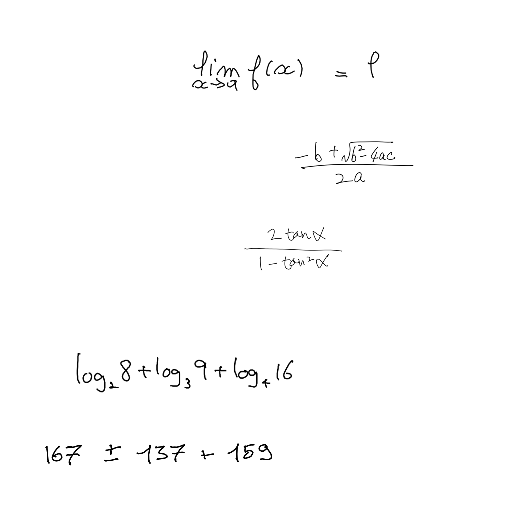 lim x→a f(x) = l
(-b + √(b² - 4ac)) / (2a)
(2 tan α) / (1 - tan² α)
log₂ 8 + log₃ 9 + log₄ 16
167 ± 137 + 159